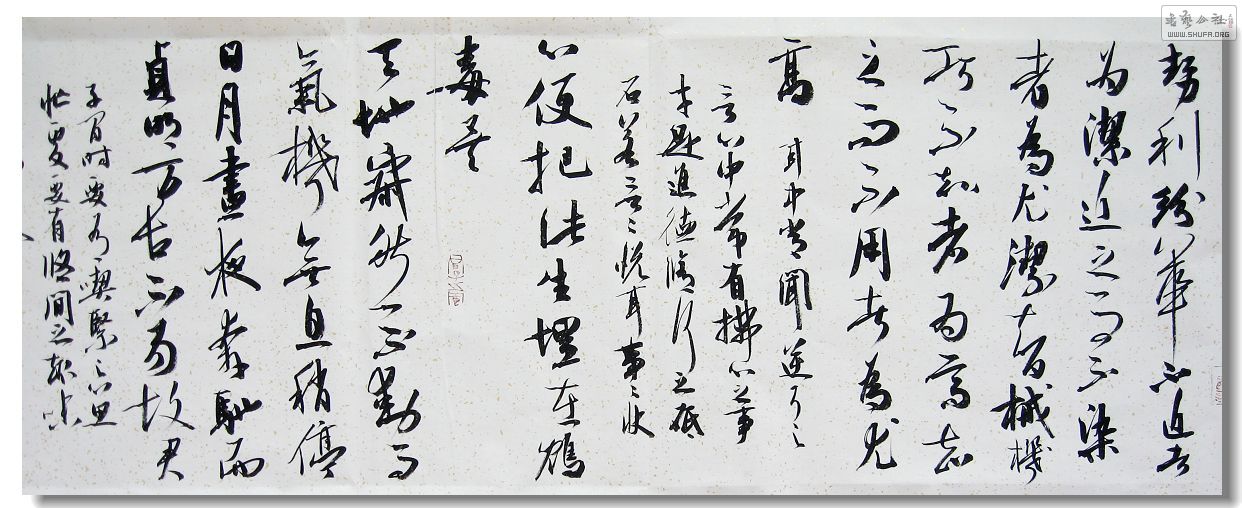 勢利紛華不近者
为潔近之而不染
者為尤潔智械機
巧不知者为高知
之而不用者為尤
高
耳中常聞逆耳之
言心中常有拂心之事
才是進德修行之砥
石若言々悅耳事々快
心便把此生埋在鴆
毒矣
天地寂然不動而
氣機無息稍停
日月晝夜奔馳而
貞明万古不易故君
子閒時要有喫緊之心思
忙處要有悠閒之趣味
書藝公社
WWW.SHUFA.ORG